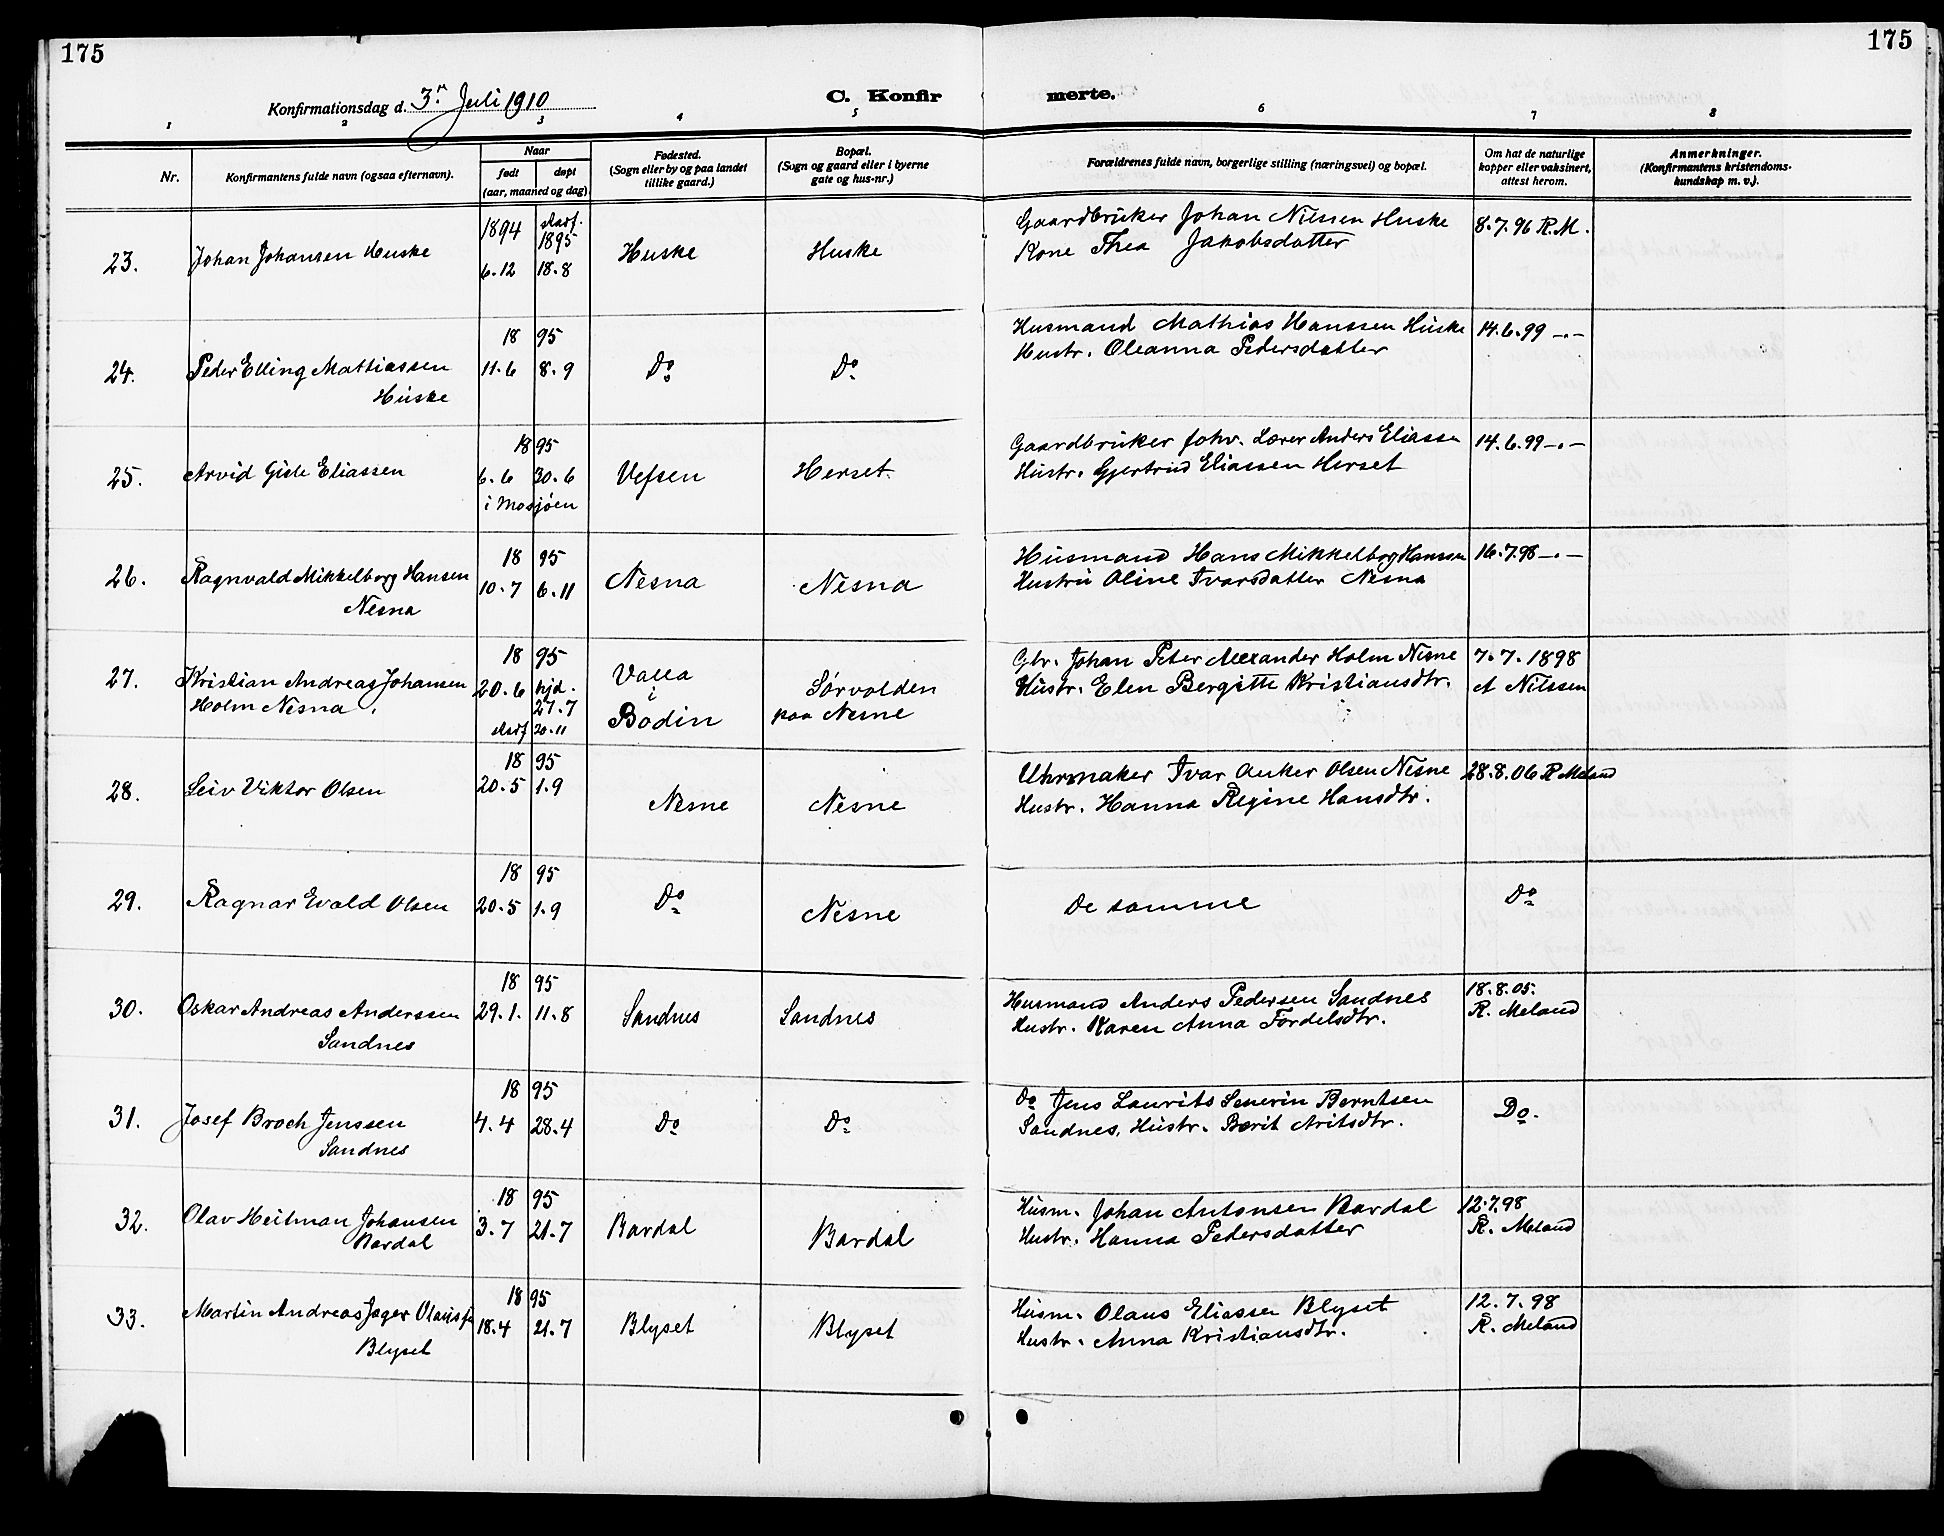 175
175
Konfirmationsdag d. 3. Juli 1910
C. Konfirmerte.
1 2 3 4 5 6 7 8
Nr.
Konfirmantens fulde navn (ogsaa efternavn).
Naar
født døpt
(aar, maaned og dag)
Fødested.
(Sogn eller by og paa landet
tillike gaard.)
Bopæl.
(Sogn og gaard eller i byerne
gate og hus-nr.)
Forældrenes fulde navn, borgerlige stilling (næringsvei) og bopæl.
Om hat de naturlige
kopper eller vaksinert,
attest herom.
Anmerkninger.
(Konfirmantens kristendoms-
kundskap m. v.).
23. Johan Johansen Huske
1894 stadf. 1895
6.12 18.8
Huske Huske
Gaardbruker Johan Nilssen Huske
Kone Thea Jakobsdatter
8.7.96 R.M.
24. Peder Elling Mattiassen
Huske
18 95
11.6 8.9
Do Do
Husmand Mathias Hanssen Huske
Hustr. Oleanna Pedersdatter
14.6.99 -.-
25. Arvid Gisle Eliassen
18 95
6.6 30.6
i Mosjøen
Vefsen Herset
Gaardbruker forhv. Lærer Anders Eliassen
Hustr. Gjertrud Eliassen Herset
14.6.99 -.-
26. Ragnvald Mikkelborg Hansen
Nesna
18 95
10.7 6.11
Nesna Nesna
Husmand Hans Mikkelborg Hanssen
Hustru Oline Ivarsdatter Nesna
16.7.98 -.-
27. Kristian Andreas Johansen
Holm Nesna.
18 95
20.6 hjd. 27.7
stadf 20.11
Valla
i
Bodin
Sørvolden
paa Nesne
Gbr. Johan Peter Alexander Holm Nesne
Hustr. Elen Bergitte Kristiansdtr.
7.7.1898
A Nilssen
28. Leiv Viktor Olsen
18 95
20.5 1.9
Nesne Nesne
Uhrmaker Ivar Anker Olsen Nesne
Hustr. Hanna Regine Hansdtr.
28.8.06 R Meland
29. Ragnar Evald Olsen
18 95
20.5 1.9
Do Nesne
De samme
Do
30. Oskar Andreas Anderssen
Sandnes
18 95
29.1. 11.8
Sandnes Sandnes
Husmand Anders Pedersen Sandnes
Hustr. Karen Anna Fordelsdtr.
18.8.05.
R. Meland
31. Josef Broch Jenssen
Sandnes
18 95
4.4 28.4
Do Do
Do Jens Laurits Severin Berntsen
Sandnes, Hustr. Berit Aritsdtr.
Do.
32. Olav Heitman Johansen
Bardal
18 95
3.7 21.7
Bardal Bardal
Husm. Johan Antonsen Bardal
Hustr. Hanna Pedersdatter
12.7.98
R. Meland
33. Martin Andreas Jæger Olaus
Blyset
18 95
18.4 21.7
Blyset Blyset
Husm. Olaus Eliassen Blyset
Hustr. Anna Kristiansdtr.
12.7.98
R. Meland